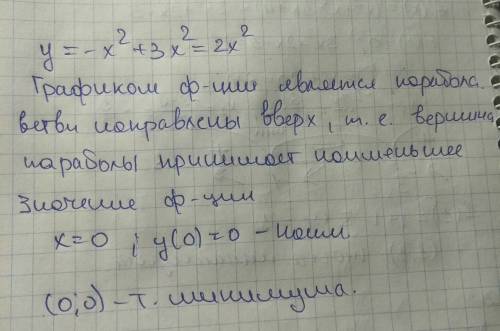 y = -x² + 3x² = 2x²
Графиком ф-ции является парабола.
ветви направлены вверх, т. е. вершина
параболы принимает наименьшее
значение ф-ции
x=0 ; y(0)=0 - наим.
(0;0) - т. минимума.